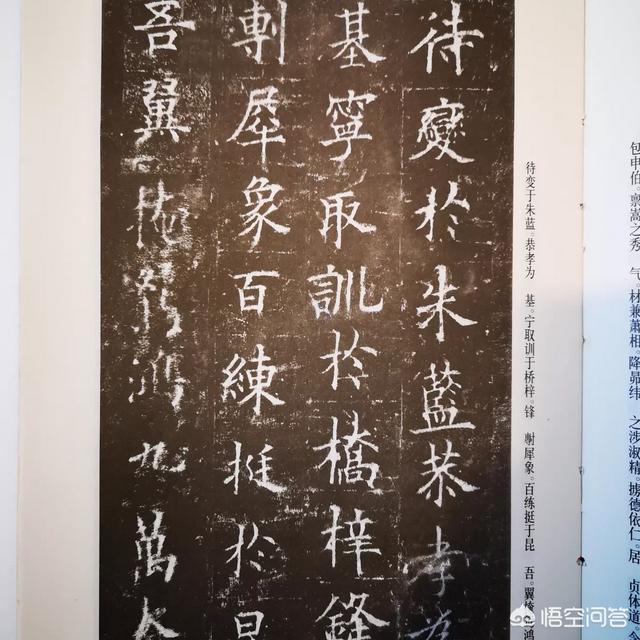 包申伯。禀嵩之秀 气。材兼萧相。降昴纬 之涉淑精。据德依仁。居 贞体
待变于朱蓝。恭孝为 基。宁取训于桥梓。锋 剸犀象。百练挺于昆 吾。翼
待變於朱藍恭孝為
基寧取訓於橋梓鋒
剸犀象百練挺於昆
吾翼掩鴻九萬
悟空问答